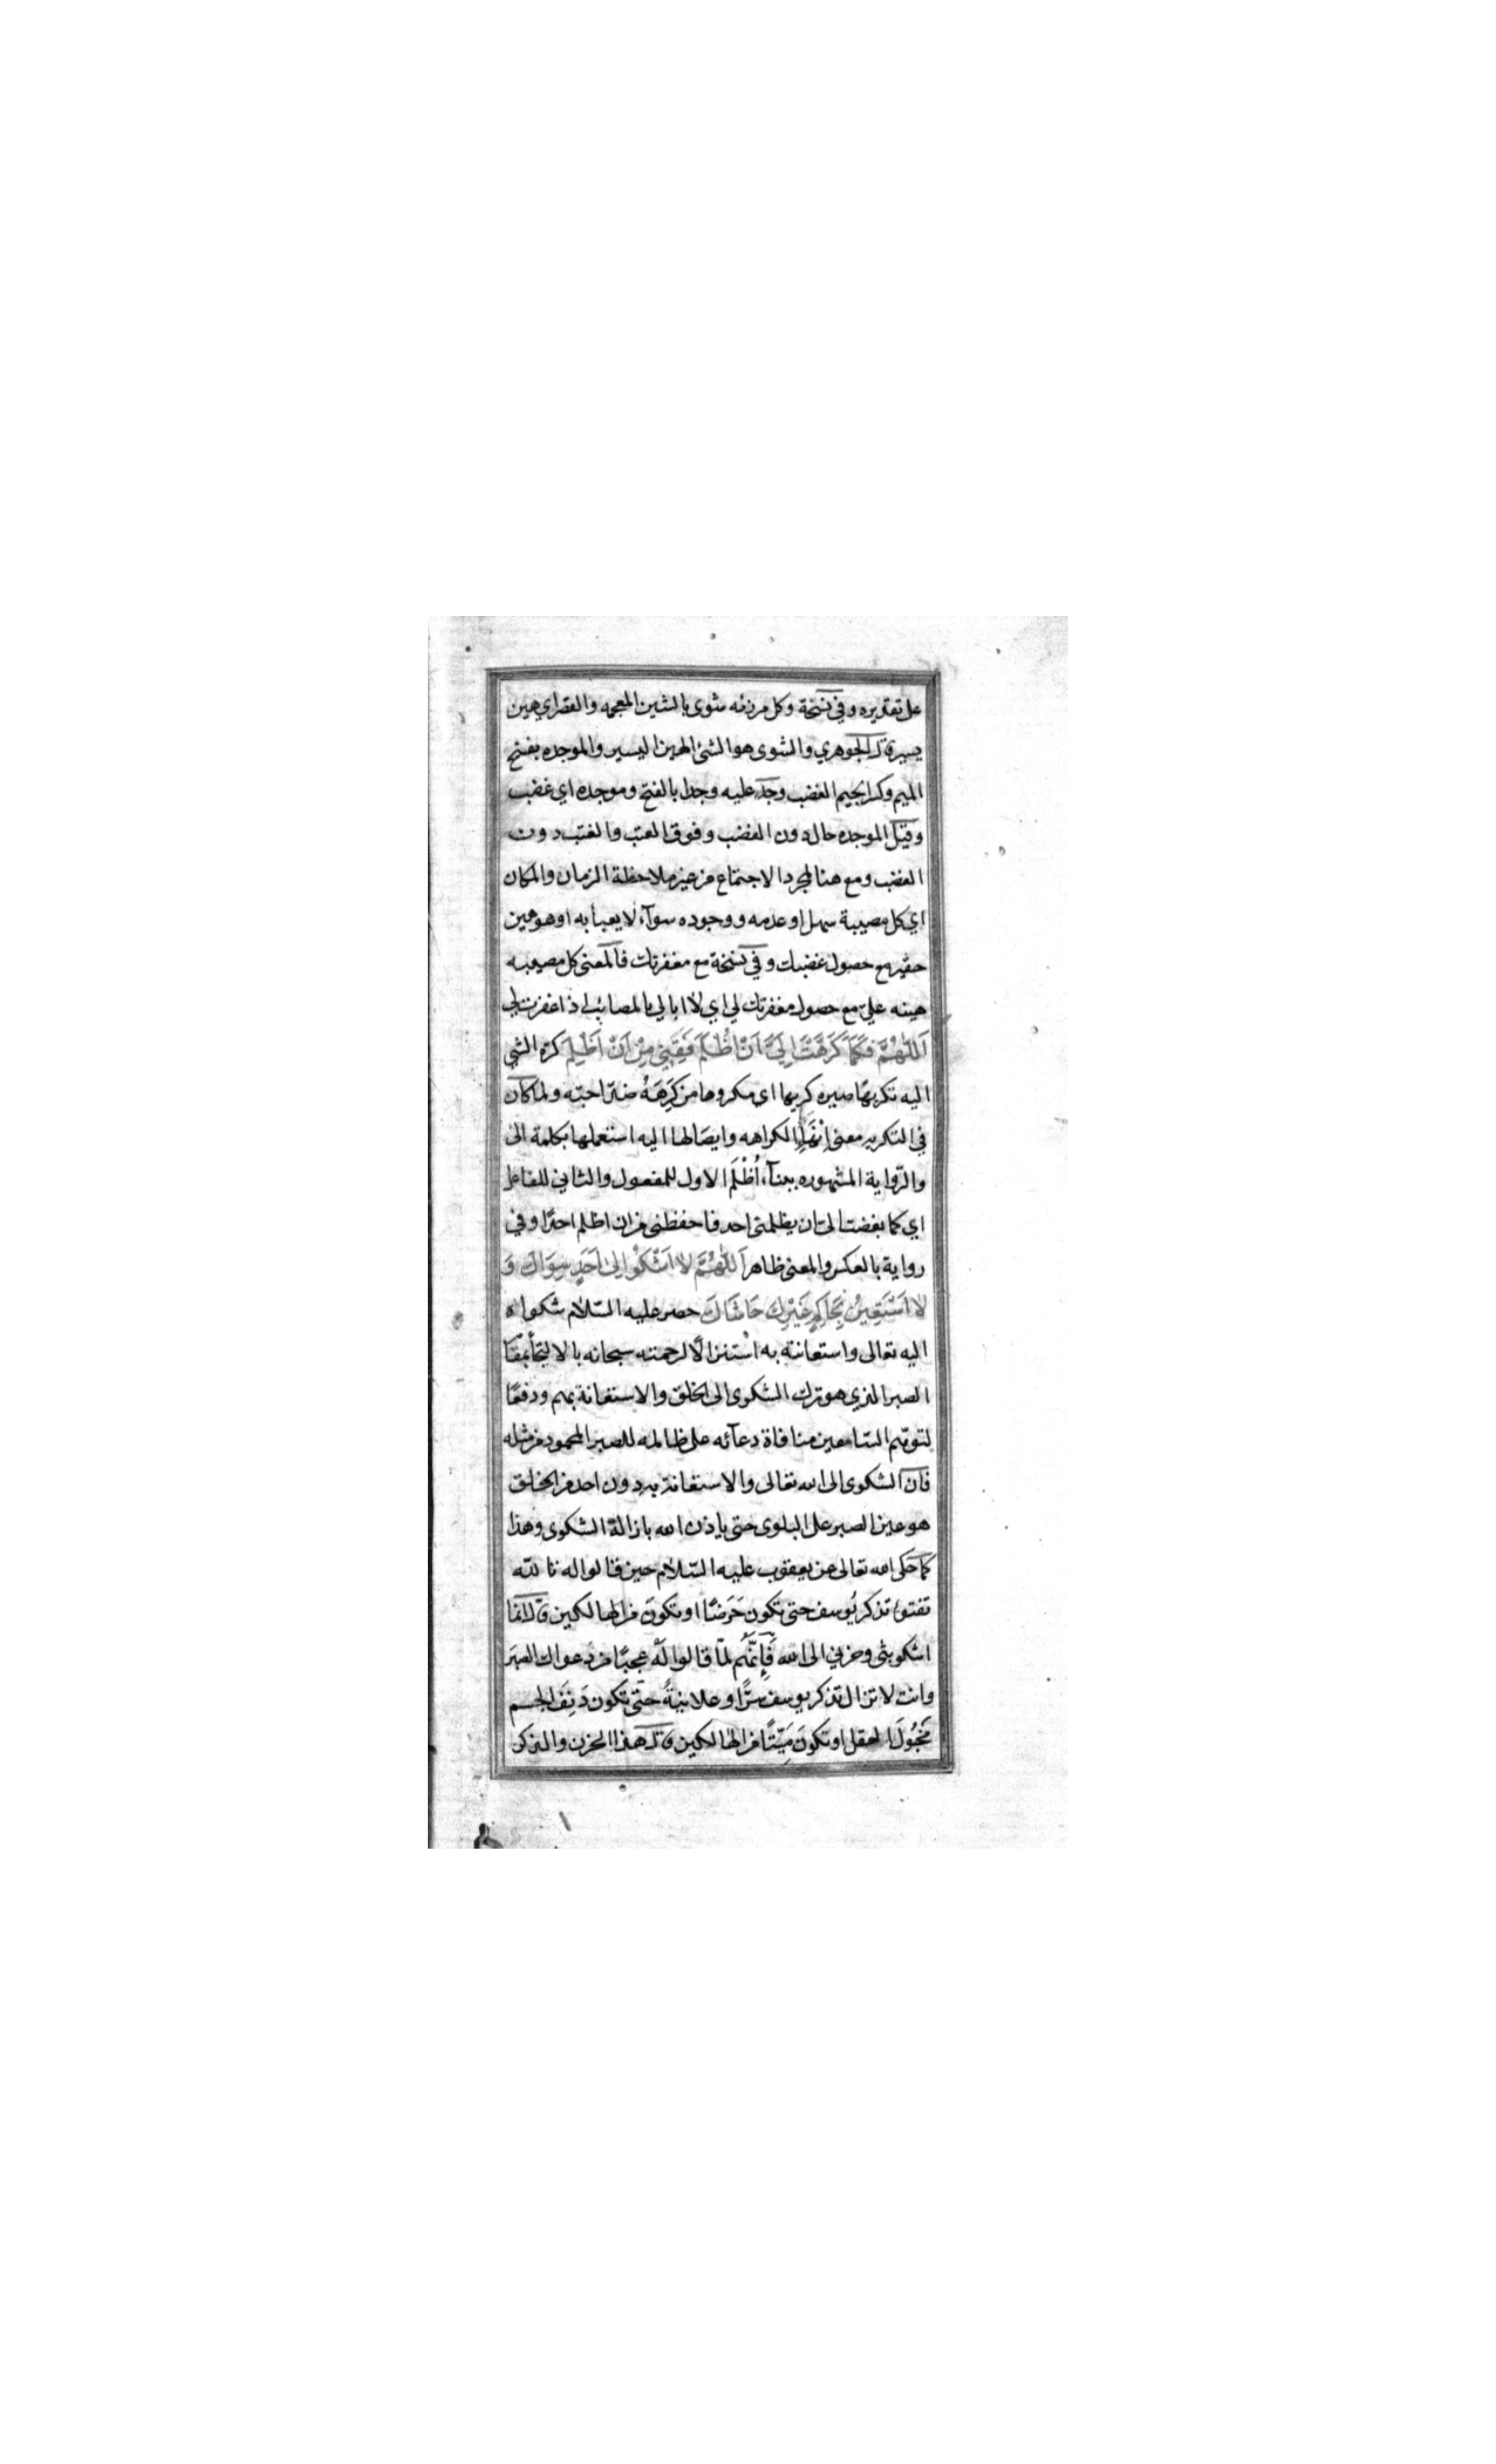 على تقديره وفي نسخة وكل مرزئه شوى بالشين المعجمه والقصر اي هين
يسير قال الجوهري والشوى هو الشئ الهين اليسير والموجده بفتح
الميم وكسر الجيم الغضب وجد عليه وجدا بالفتح وموجده اي غضب
وقيل الموجده حال دون الغضب وفوق العتب والعتب دون
الغضب ومع هنا لمجرد الاجتماع من غير ملاحظة الزمان والمكان
اي كل مصيبة سهل او عدمه ووجوده سوآء لا يعبا به او هو هين
حقير مع حصول غضبك وفي نسخة مع مغفرتك فالمعنى كل مصيبه
هينه علي مع حصول مغفرتك لي اي لا ابالي بالمصائب اذا غفرت لي
اَللّهُمَّ فَكَمَا كَرَّهْتَ اِلَيَّ اَنْ اُظْلَمَ فَقِنِي مِنْ اَنْ اَظْلِمَ كرّه الشي
اليه تكريهًا صيره كريها اي مكروها من كَرِهَهُ ضد احبّه ولما كان
في التكريه معنى اِنْهَاءِ الكراهه وايصَالها اليه استعملها بكلمة الى
والرّواية المشهوره ببنآء اُظْلَمَ الاول للمفعول والثاني للفاعل
اي كما بغضت الىّ ان يظلمنى احد فاحفظنى من ان اظلم احدًا وفي
رواية بالعكس والمعنى ظاهر اَللّهُمَّ لا اَشْكُو اِلى اَحَدٍ سِوَاكَ وَ
لا اَسْتَعِينُ بِحَاكِمٍ غَيْرِكَ حَاشَاكَ حصر عليه السّلام شكواه
اليه تعالى واستعانته به اسْتنزالًا لرحمته سبحانه بالالتجآء
الصبر الذي هو ترك الشكوى الى الخلق والاستغاثة بهم ودفعًا
لتوهّم السّامعين منافاة دعآئه على ظالمه للصبر المحمود من مثله
فان الشكوى الى الله تعالى والاستغاثة به دون احد من الخلق
هو عين الصبر على البلوى حتى ياذن الله بازالة الشكوى وهذا
كما حكى الله تعالى عن يعقوب عليه السّلام حين قالوا له تالله
تفتوء تذكر يُوسف حتى تكون حَرَضًا او تكونَ من الهالكين قال انما
اشكو بثى وحزني الى الله فَإِنَّهُم لمّا قالوا لَهُ عجبًا من دعواك الصبر
وانت لا تزال تذكر يوسف سرًّا وعلانيةً حتّى تكون دَنِفَ الجسم
مَخْبُولَ العقل او تكونَ مَيّتًا من الهالكين قال هذا الحزن والذكر